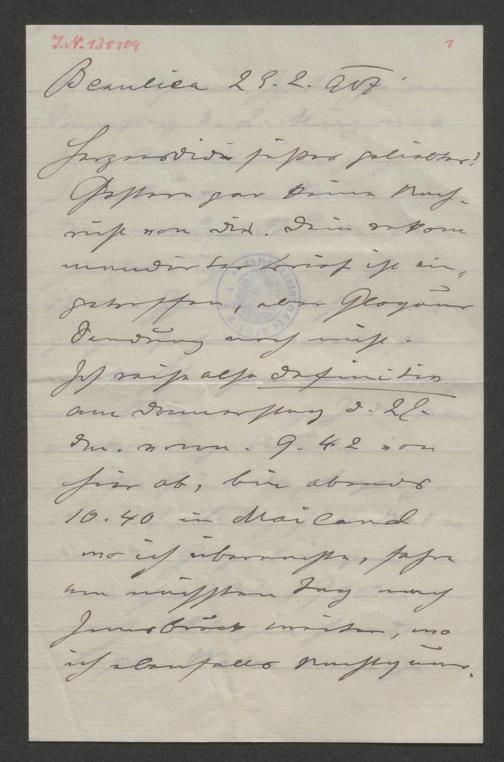 J.N. 130104
1
Beaulieu 23. 2. 907.
süßer geliebter!
Gestern gar keine Nach-
richt von Dir. Dein rekom
mandirter Brief ist ein-
getroffen, aber
Sendung noch nicht.
Ich reise also definitiv
am Donnerstag d. 28.
9.42 von
hier ab, bin abends
10.40 in Mailand
wo ich übernachte, fahre
am nächsten Tag nach
Innsbruck weiter, wo
ich ebenfalls